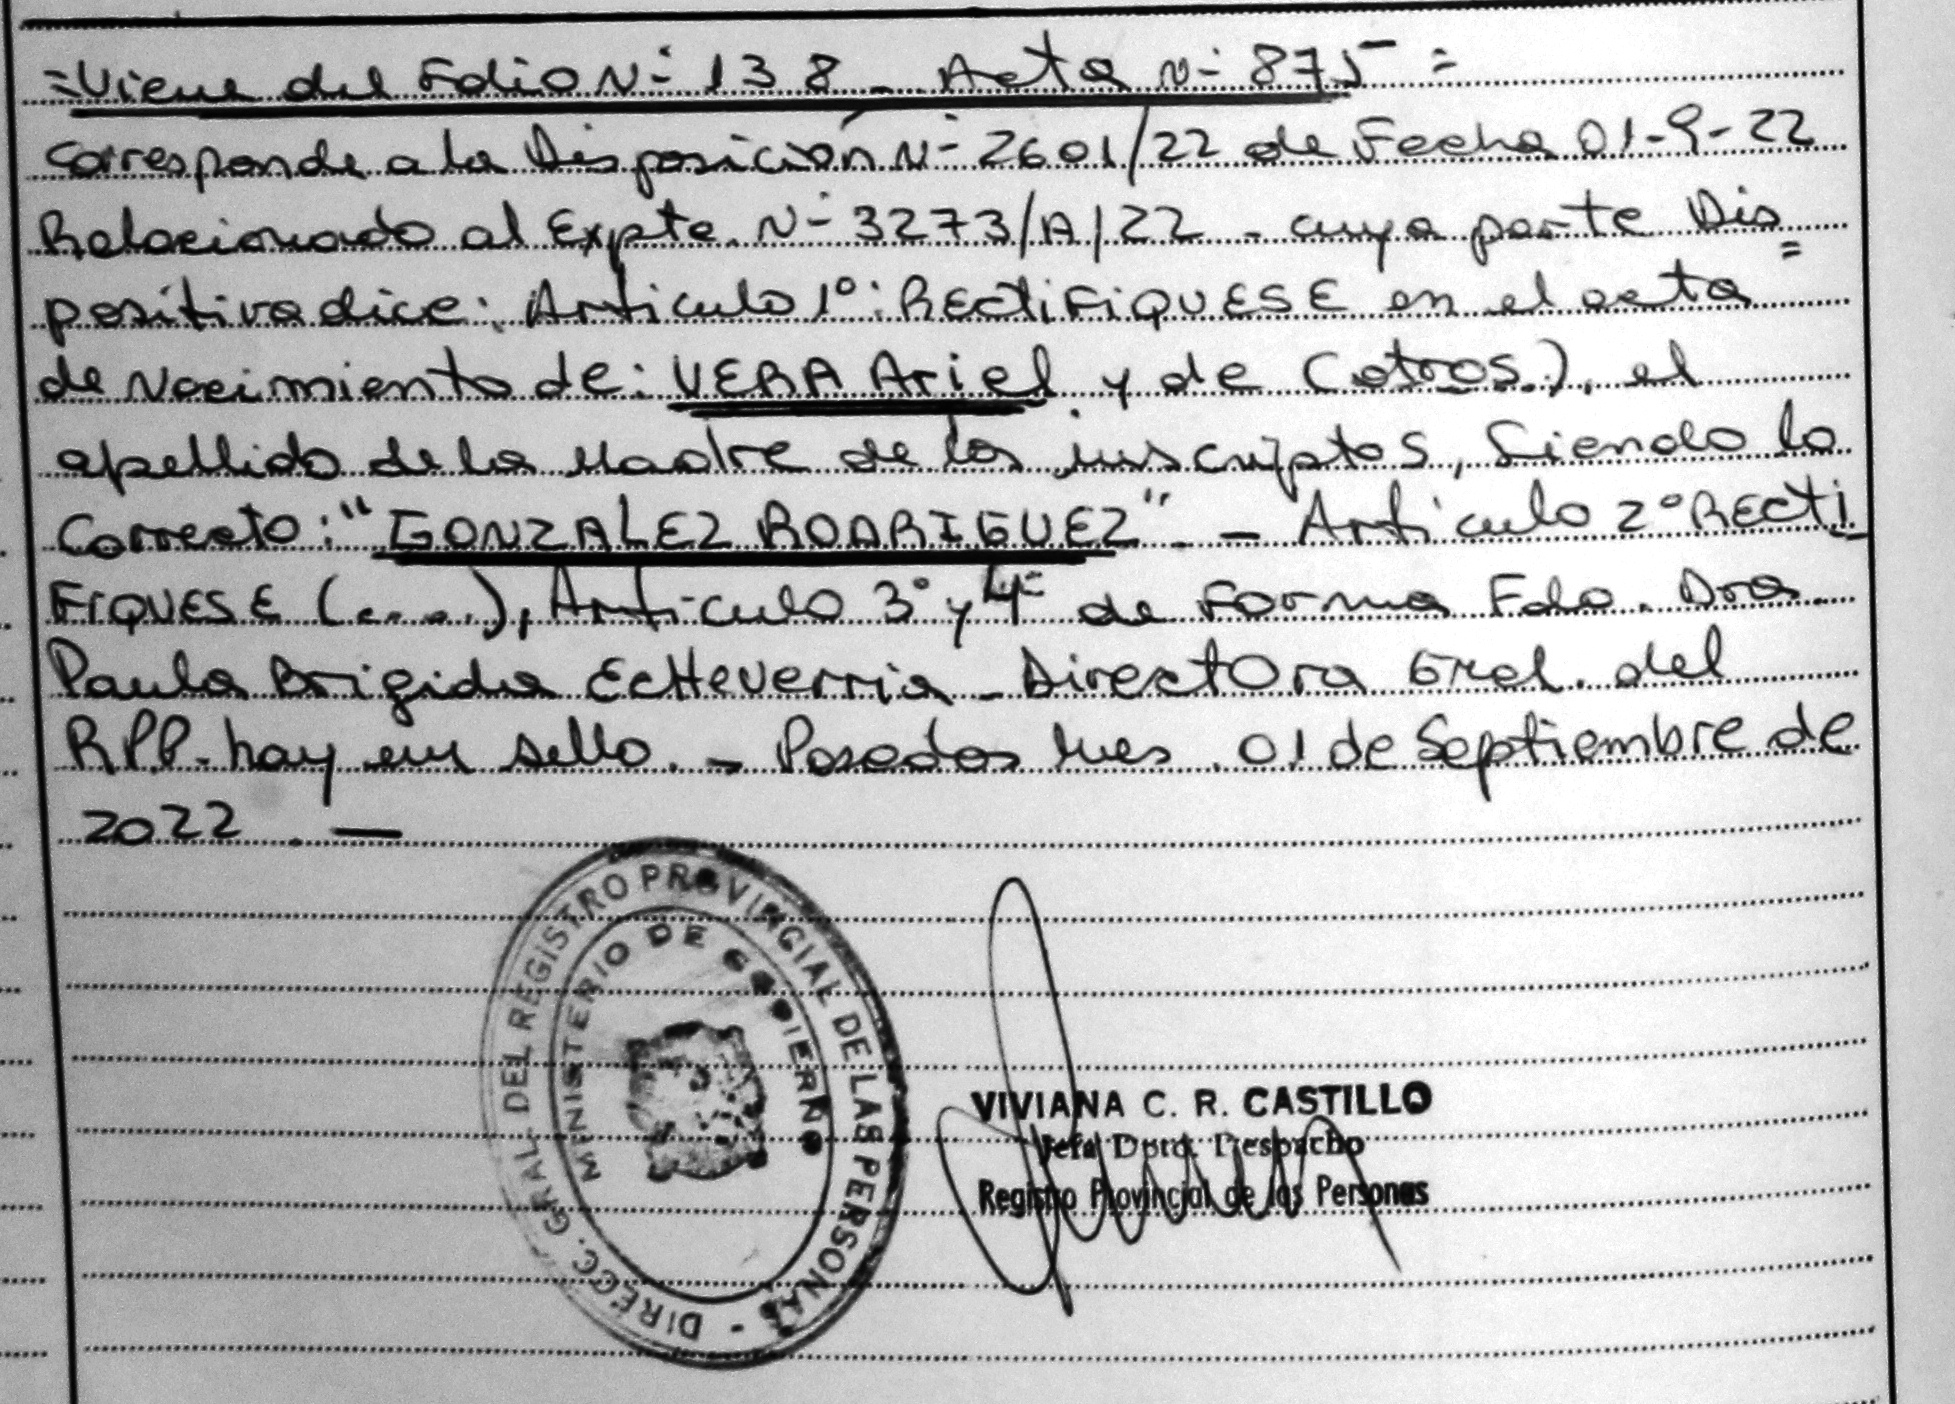 =Viene del Folio N- 138 - Acta N- 875 =
Corresponde a la Disposición N- 2601/22 de Fecha 01-9-22
Relacionado al Expte. N- 3273/A/22 - cuya parte Dis=
positiva dice: Articulo 1°: RECtiFIQUESE en el acta
de Nacimiento de: VERA Ariel y de (otros.), el
apellido de la Madre de los inscriptos, Siendo lo
Correcto: "GONZALEZ RODRIGUEZ" - Articulo 2° RECti_
FIQUESE (.....), Articulo 3° y 4° de Forma Fdo. Dra.
Paula Brigida Echeverria - Directora Gral. del
RPP- hay un sello. - Posadas Mes 01 de Septiembre de
2022. —
DIRECC. GRAL. DEL REGISTRO PROVINCIAL DE LAS PERSONAS -
MINISTERIO DE GOBIERNO
VIVIANA C. R. CASTILLO
Jefa Dpto. Despacho
Registro Provincial de las Personas